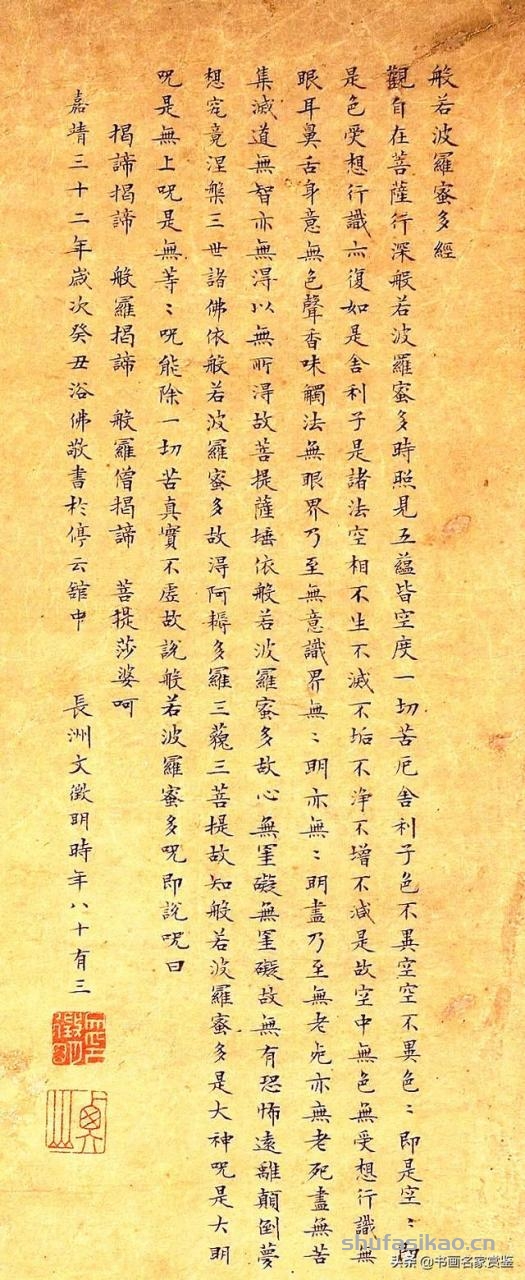 般若波羅蜜多經
觀自在菩薩行深般若波羅蜜多時照見五蘊皆空度一切苦厄舍利子色不異空空不異色〻即是空〻即
是色受想行識亦復如是舍利子是諸法空相不生不滅不垢不淨不增不減是故空中無色無受想行識無
眼耳鼻舌身意無色聲香味觸法無眼界乃至無意識界無〻明亦無〻明盡乃至無老死亦無老死盡無苦
集滅道無智亦無得以無所得故菩提薩埵依般若波羅蜜多故心無罣礙無罣礙故無有恐怖遠離顛倒夢
想究竟涅槃三世諸佛依般若波羅蜜多故得阿耨多羅三藐三菩提故知般若波羅蜜多是大神咒是大明
咒是無上咒是無等〻咒能除一切苦真實不虛故說般若波羅蜜多咒即說咒曰
揭諦揭諦 般羅揭諦 般羅僧揭諦 菩提莎婆呵
嘉靖三十二年歲次癸丑浴佛敬書於停云館中 長洲文徵明時年八十有三
shufasikao.cn
头条 @书画名家赏鉴